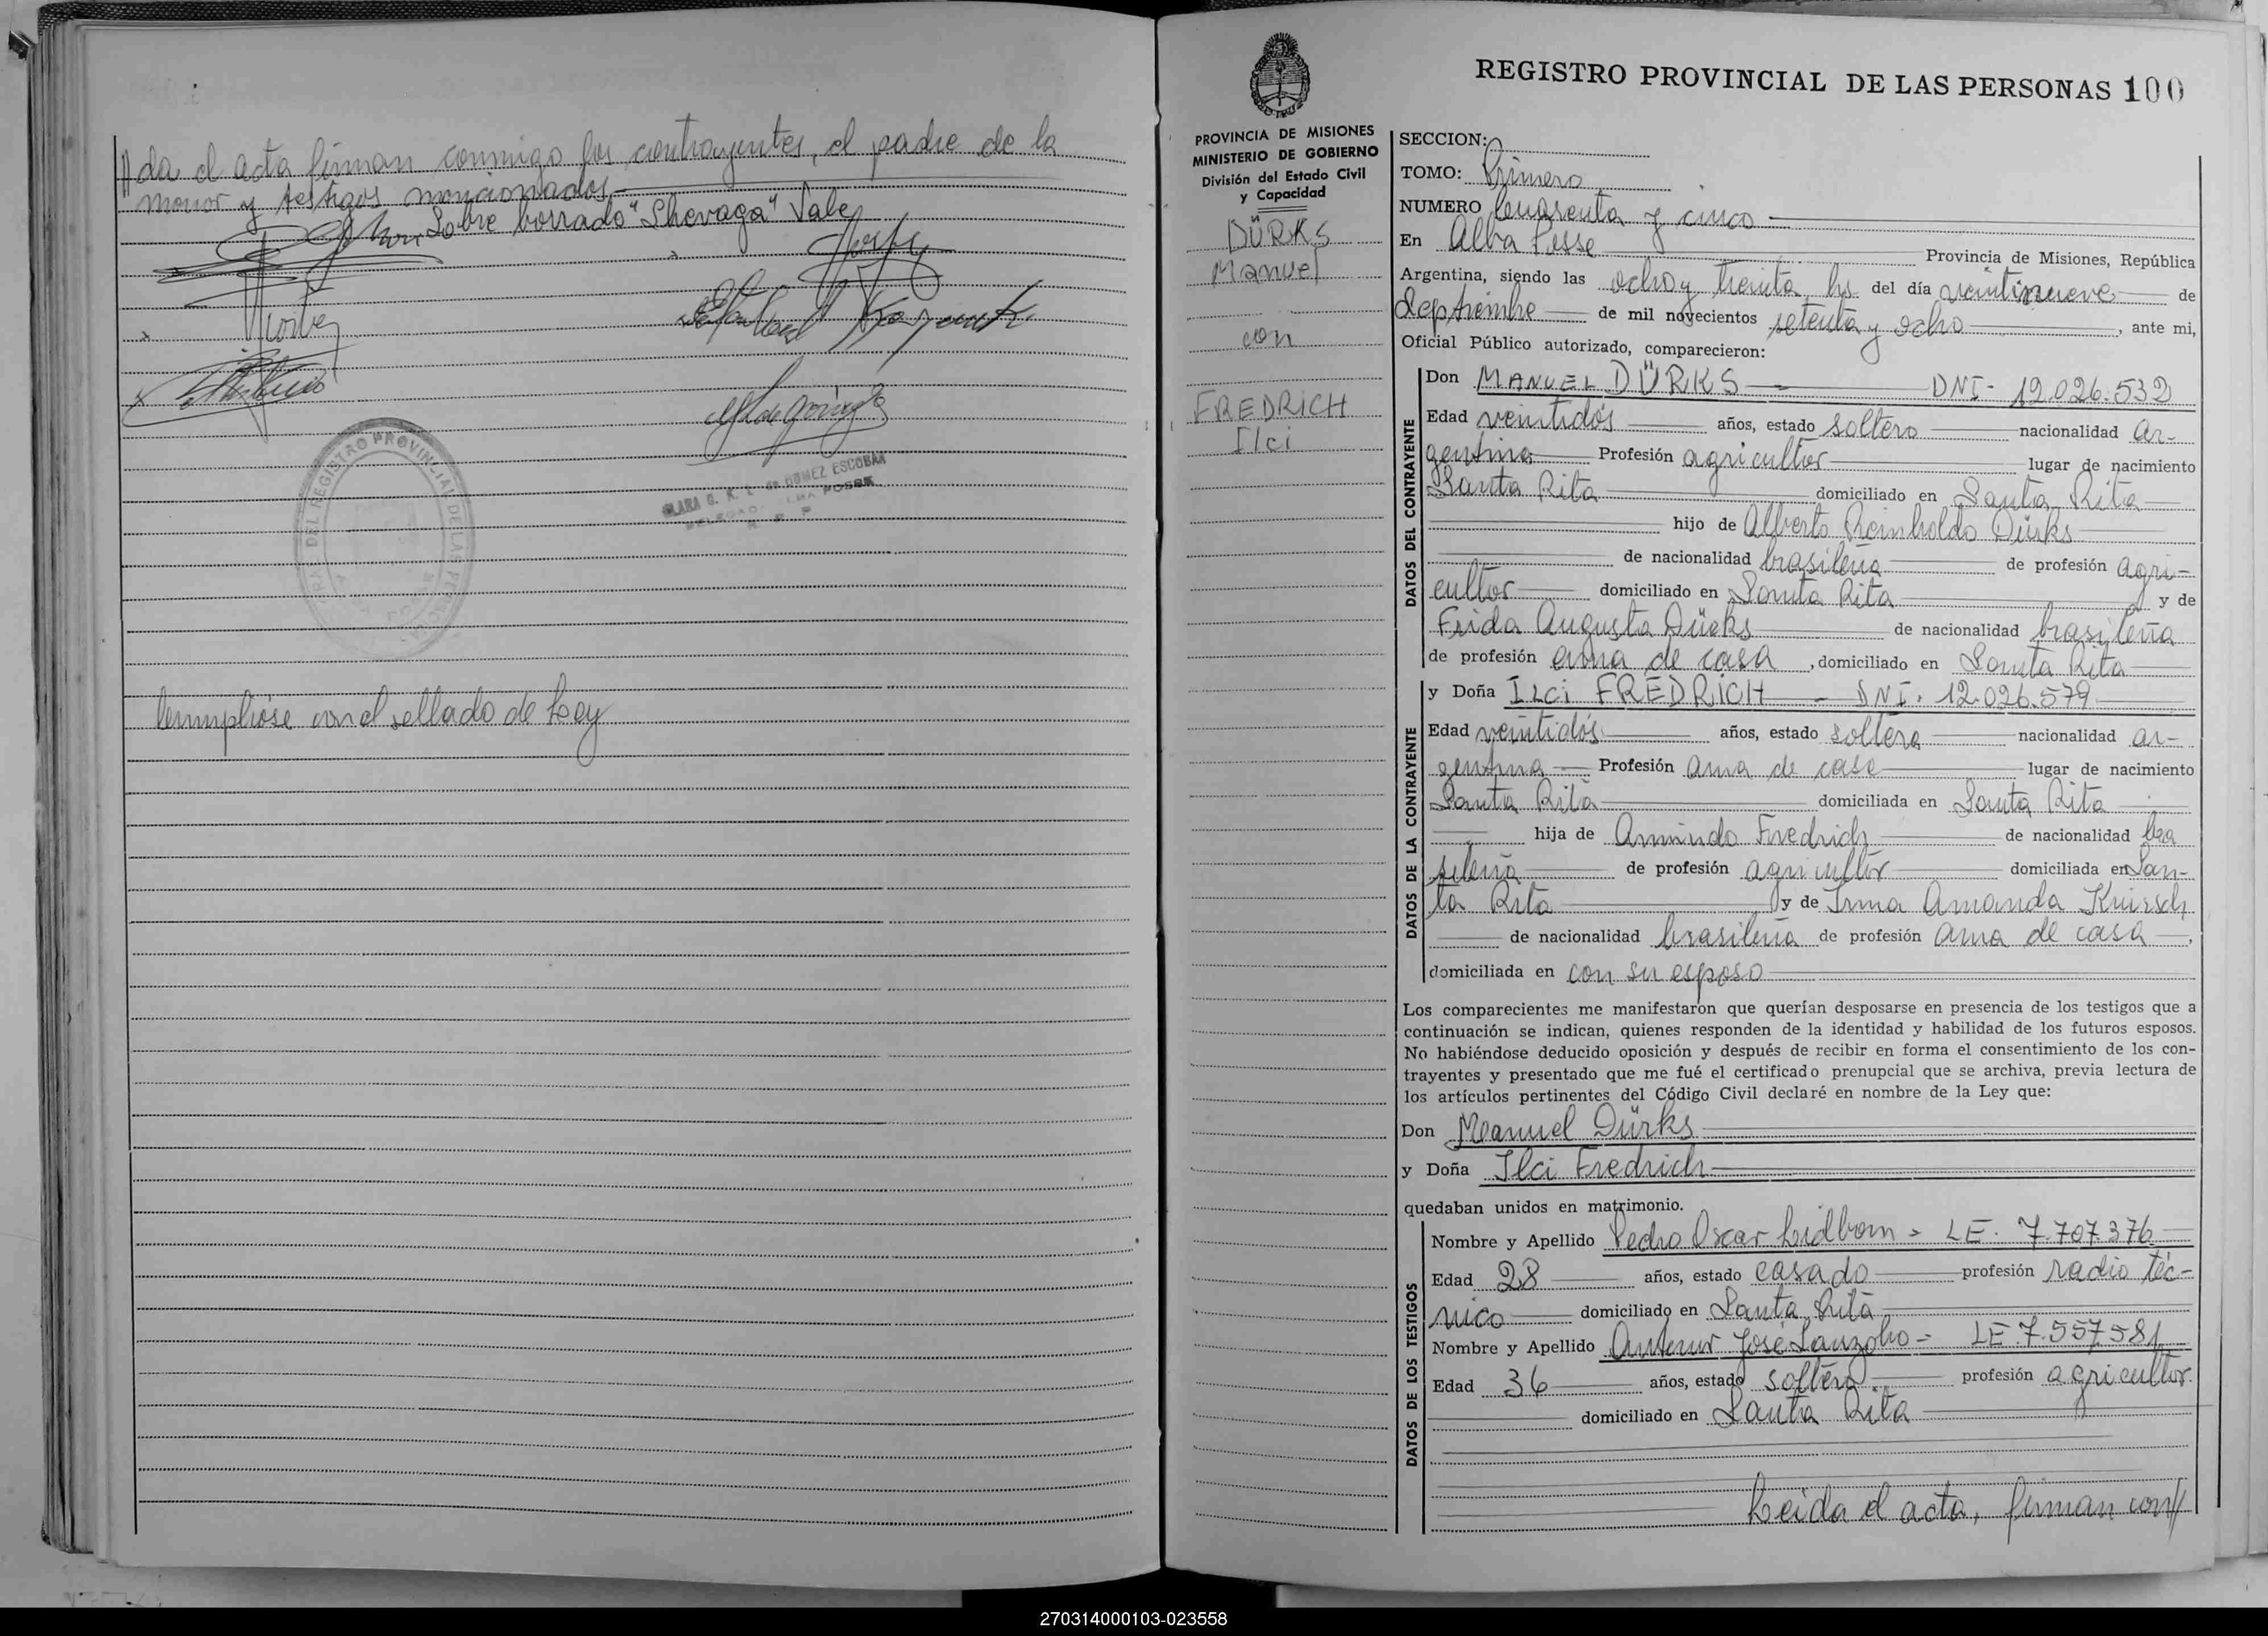 da el acta firman conmigo los contrayentes, el padre de la
menor y testigos mencionados.
Sobre borrado "Shevaga" Vale
CLARA G. K. L. de GOMEZ ESCOBAR
Cumplióse con el sellado de Ley
REGISTRO PROVINCIAL DE LAS PERSONAS 100
PROVINCIA DE MISIONES
MINISTERIO DE GOBIERNO
División del Estado Civil
y Capacidad
DÜRKS
Manuel
con
FREDRICH
Ilci
SECCION:
TOMO: Primero
NUMERO Cuarenta y cinco
En Alba Posse Provincia de Misiones, República
Argentina, siendo las ocho y treinta hs. del día veintinueve de
septiembre de mil novecientos setenta y ocho, ante mi,
Oficial Público autorizado, comparecieron:
DATOS DEL CONTRAYENTE
Don MANUEL DÜRKS - DNI- 12.026.532
Edad veintidós años, estado soltero nacionalidad ar-
gentina Profesión agricultor lugar de nacimiento
Santa Rita domiciliado en Santa Rita
hijo de Alberto Reinholdo Dürks
de nacionalidad brasileña de profesión agri-
cultor domiciliado en Santa Rita y de
Frida Augusta Dürks de nacionalidad brasileña
de profesión ama de casa, domiciliado en Santa Rita
DATOS DE LA CONTRAYENTE
y Doña ILCI FREDRICH - DNI. 12.026.579
Edad veintidós años, estado soltera nacionalidad ar-
gentina Profesión ama de casa lugar de nacimiento
Santa Rita domiciliada en Santa Rita
hija de Armindo Fredrich de nacionalidad bra
sileña de profesión agricultor domiciliada en San-
ta Rita y de Irma Amanda Knirsch
de nacionalidad brasileña de profesión ama de casa,
domiciliada en con su esposo
Los comparecientes me manifestaron que querían desposarse en presencia de los testigos que a
continuación se indican, quienes responden de la identidad y habilidad de los futuros esposos.
No habiéndose deducido oposición y después de recibir en forma el consentimiento de los con-
trayentes y presentado que me fué el certificado prenupcial que se archiva, previa lectura de
los artículos pertinentes del Código Civil declaré en nombre de la Ley que:
Don Manuel Dürks
y Doña Ilci Fredrich
quedaban unidos en matrimonio.
DATOS DE LOS TESTIGOS
Nombre y Apellido Pedro Oscar Lidbom - LE. 7.707.376
Edad 28 años, estado casado profesión radio téc-
nico domiciliado en Santa Rita
Nombre y Apellido Antenor José Lanzoho - LE 7.557.581
Edad 36 años, estado soltero profesión agricultor.
domiciliado en Santa Rita
Leida el acta, firman con//
270314000103-023558